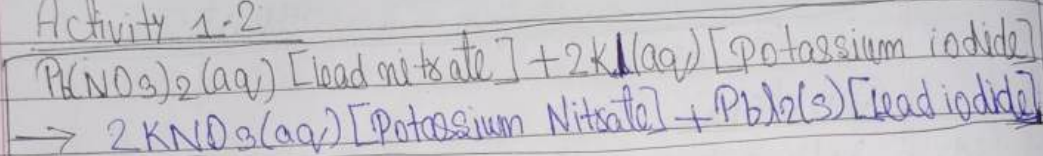 Activity 1.2
Pb(NO3)2(aq) [lead nitrate] + 2KI(aq) [Potassium iodide]
→ 2KNO3(aq) [Potassium Nitrate] + PbI2(s) [Lead iodide]